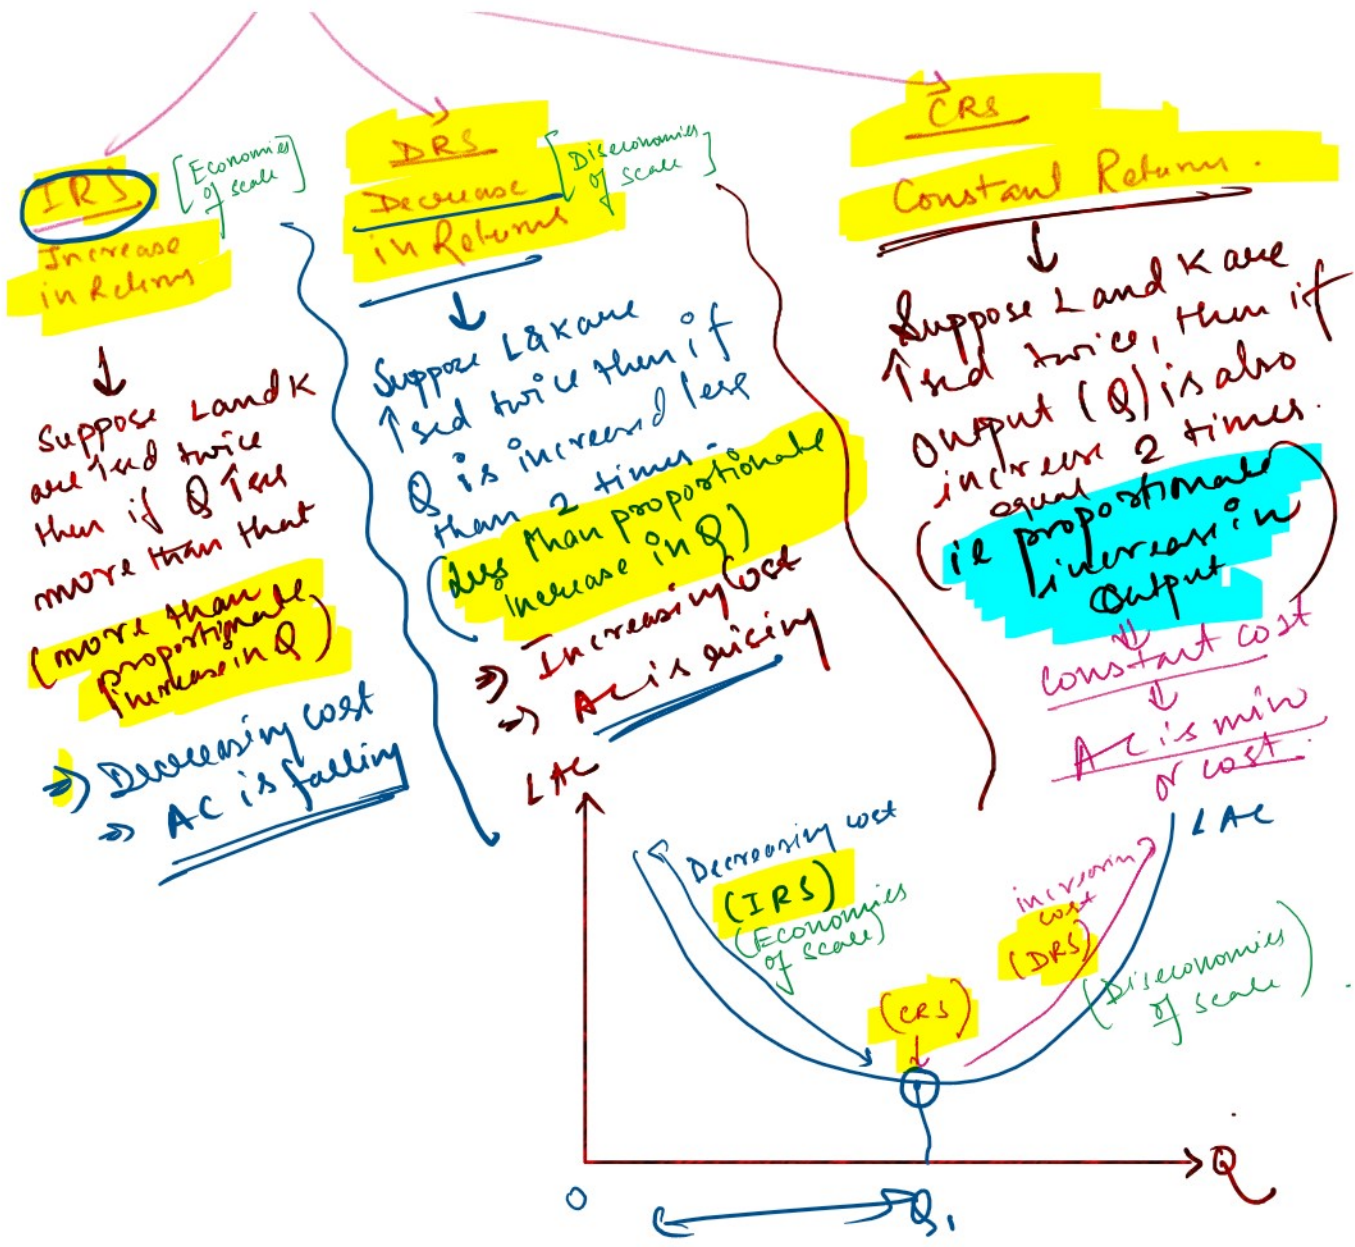 IRS
[Economies
of scale]
Increase
in Returns
↓
Suppose L and K
are ↑sed twice
then if Q ↑ses
more than that
(more than
proportionate
increase in Q)
⇒ Decreasing cost
⇒ AC is falling
DRS
[Diseconomies
of scale]
Decrease
in Returns
↓
Suppose L & K are
↑sed twice then if
Q is increased less
than 2 times.
(less than proportionate
increase in Q)
⇒ Increasing cost
⇒ AC is rising
CRS
Constant Return.
↓
Suppose L and K are
↑sed twice, then if
Output (Q) is also
increase 2 times.
equal
(ie proportionate
increase in
Output)
⇓
Constant cost
⇓
AC is min
or cost.
LAC
LAC
Decreasing cost
(IRS)
(Economies
of scale)
increasing
cost
(DRS)
(Diseconomies
of scale)
(CRS)
↓
Q
0
Q1